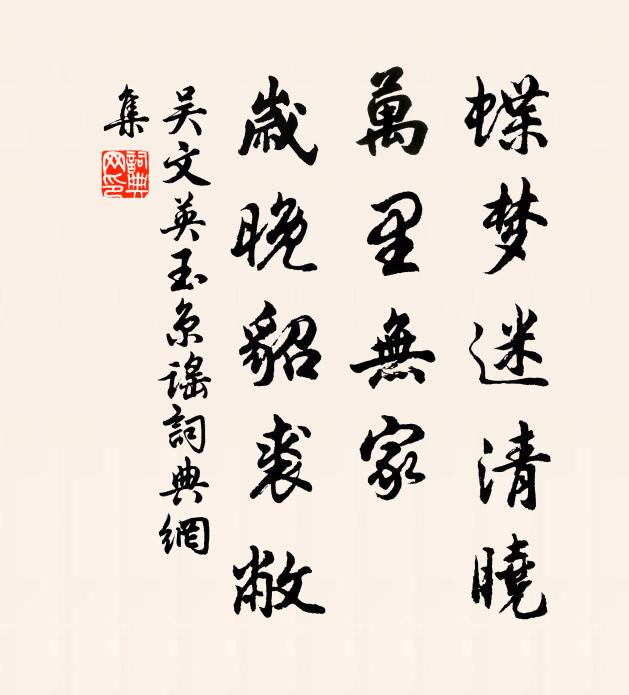 蝶梦迷清曉
萬里無家
歲晚貂裘敝
吴文英玉京谣詞典網
集
詞典网印